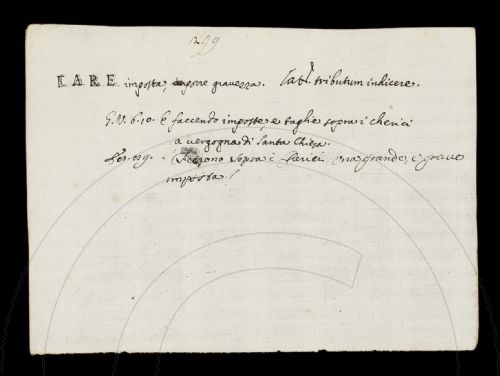 299
FARE imposta, imporre gravezza. Lat. tributum indicere.
G. V. 6. 10. E faccendo imposte, e taglie sopra i cherici
a vergogna di Santa Chiesa.
Feciono sopra i Cherici una grande, e grave
imposta.